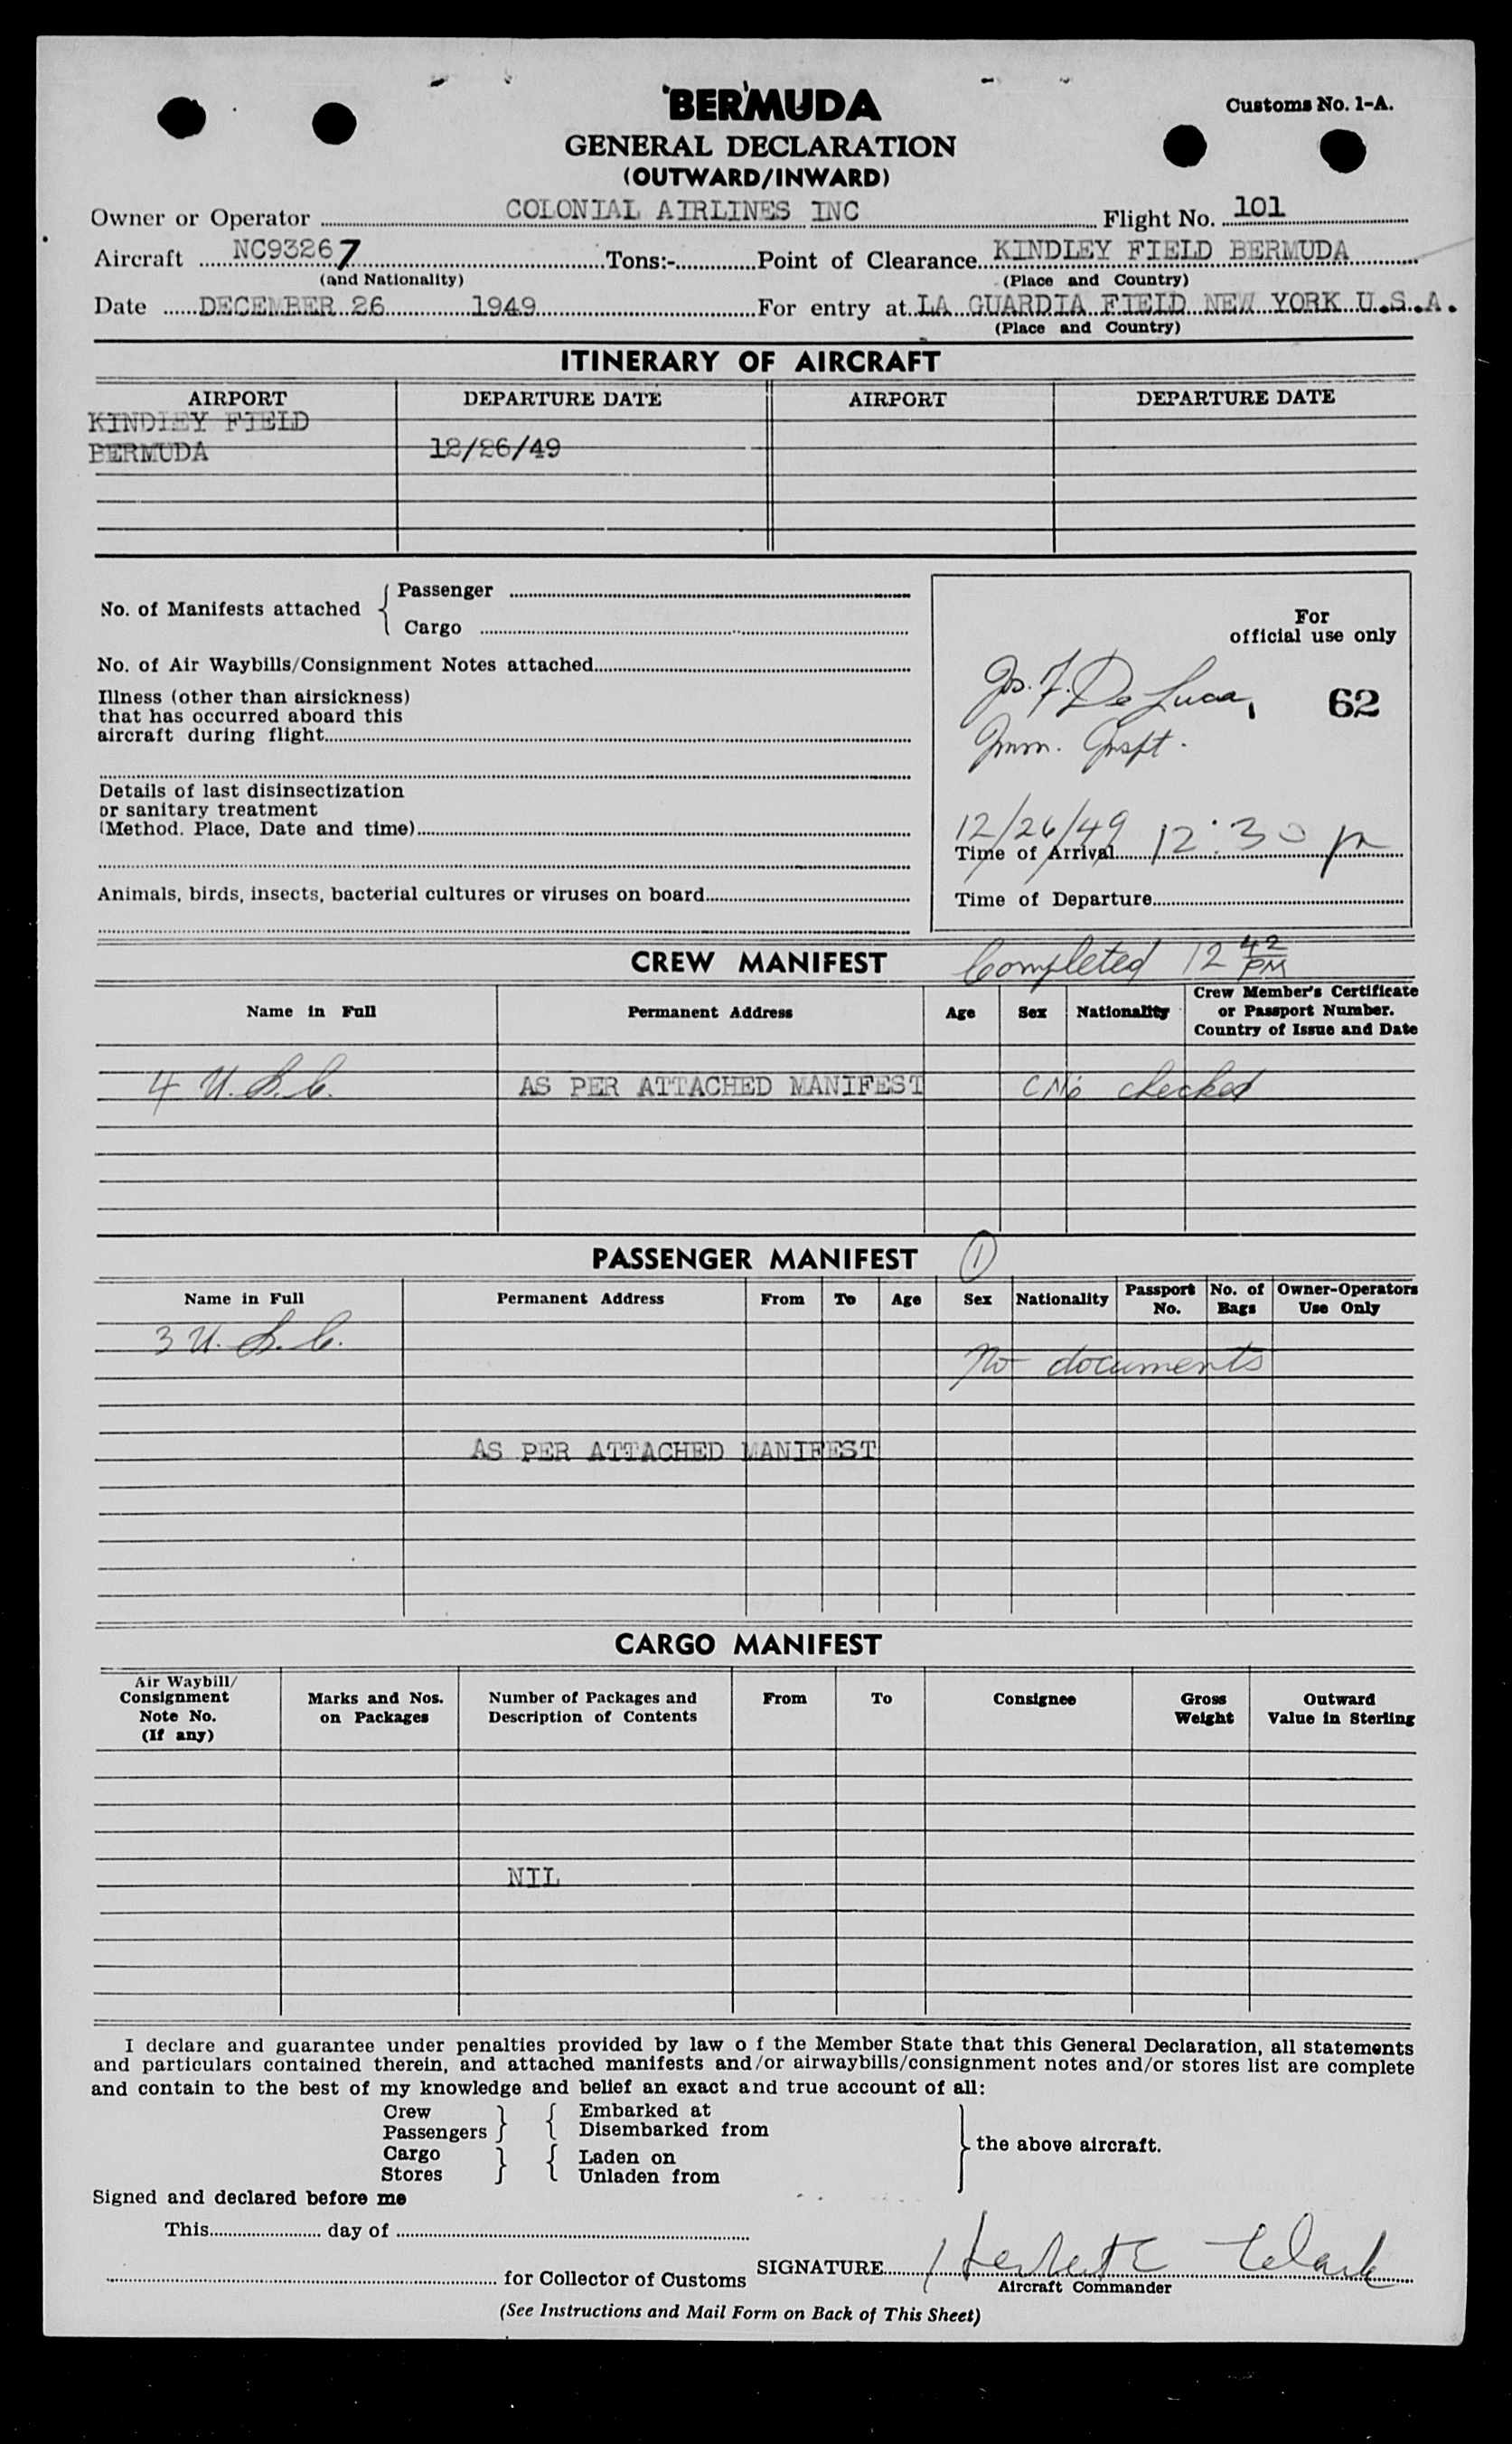 BERMUDA
Customs No. 1-A.
GENERAL DECLARATION
(OUTWARD/INWARD)
Owner or Operator COLONIAL AIRLINES INC Flight No. 101
Aircraft NC93267 Tons:- Point of Clearance KINDLEY FIELD BERMUDA
(and Nationality) (Place and Country)
Date DECEMBER 26 1949 For entry at LA GUARDIA FIELD NEW YORK U.S.A.
(Place and Country)
ITINERARY OF AIRCRAFT
AIRPORT DEPARTURE DATE AIRPORT DEPARTURE DATE
KINDLEY FIELD
BERMUDA 12/26/49
No. of Manifests attached { Passenger
Cargo
No. of Air Waybills/Consignment Notes attached
Illness (other than airsickness)
that has occurred aboard this
aircraft during flight
Details of last disinsectization
or sanitary treatment
(Method. Place, Date and time)
Animals, birds, insects, bacterial cultures or viruses on board
For
official use only
Jos. F. De Luca, 62
Imm. Inspt.
12/26/49 12:30 pm
Time of Arrival
Time of Departure
CREW MANIFEST Completed 12 42 PM
Name in Full Permanent Address Age Sex Nationality Crew Member's Certificate
or Passport Number.
Country of Issue and Date
4 U.S.C. AS PER ATTACHED MANIFEST checked
PASSENGER MANIFEST 1
Name in Full Permanent Address From To Age Sex Nationality Passport No. No. of Bags Owner-Operators Use Only
3 U.S.C.
No documents
AS PER ATTACHED MANIFEST
CARGO MANIFEST
Air Waybill/
Consignment
Note No.
(If any)
Marks and Nos.
on Packages
Number of Packages and
Description of Contents
From To Consignee
Gross
Weight
Outward
Value in Sterling
NIL
I declare and guarantee under penalties provided by law o f the Member State that this General Declaration, all statements
and particulars contained therein, and attached manifests and/or airwaybills/consignment notes and/or stores list are complete
and contain to the best of my knowledge and belief an exact and true account of all:
Crew } { Embarked at
Passengers } { Disembarked from
Cargo } { Laden on
Stores } { Unladen from
} the above aircraft.
Signed and declared before me
This day of
for Collector of Customs
SIGNATURE Herbert E Clark
Aircraft Commander
(See Instructions and Mail Form on Back of This Sheet)